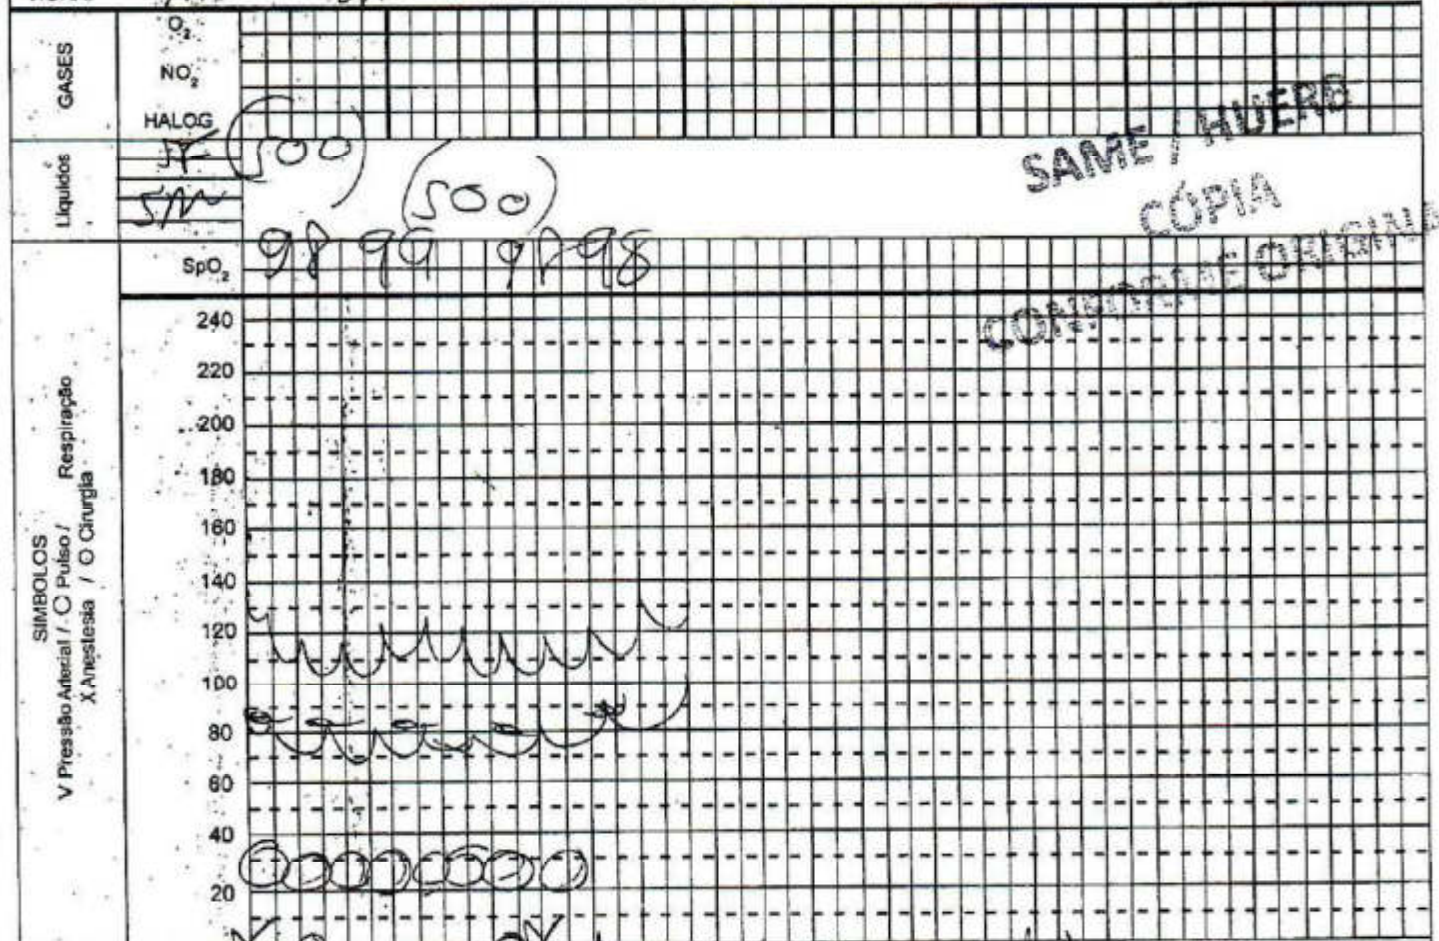 GASES
O₂
NO₂
HALOG
Líquidos
(500)
SM (500)
SpO₂ 98 99 98 98
SAME / HUERB
CÓPIA
CONFORME ORIGINA
SIMBOLOS
V Pressão Arterial / O Pulso / Respiração
X Anestesia / O Cirurgia
240
220
200
180
160
140
120
100
80
60
40
20